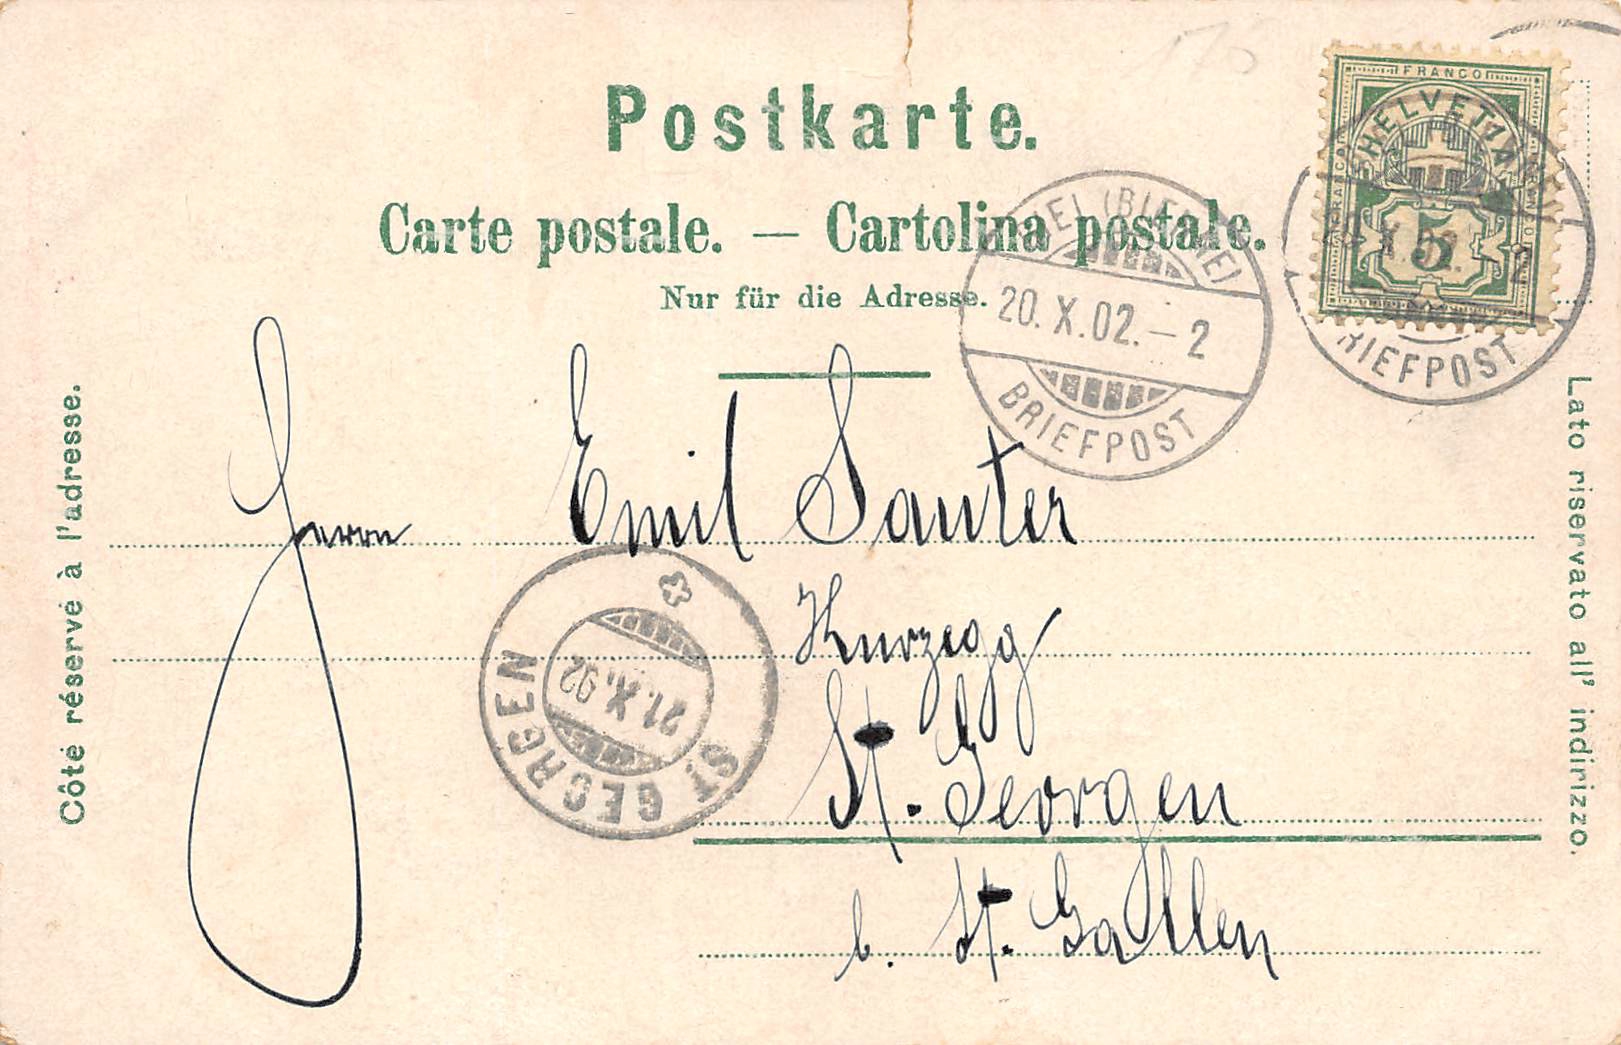 170
Postkarte.
Carte postale. — Cartolina postale.
Nur für die Adresse.
FRANCO
HELVETIA
5
BIEL (BIENNE)
20. X. 02. – 2
BRIEFPOST
20. X. 02. – 2
BRIEFPOST
Côté réservé à l'adresse.
Lato riservato all' indirizzo.
Herrn Emil Sauter
Kurzegg
St. Georgen
b. St. Gallen
ST. GEORGEN
21. X. 02